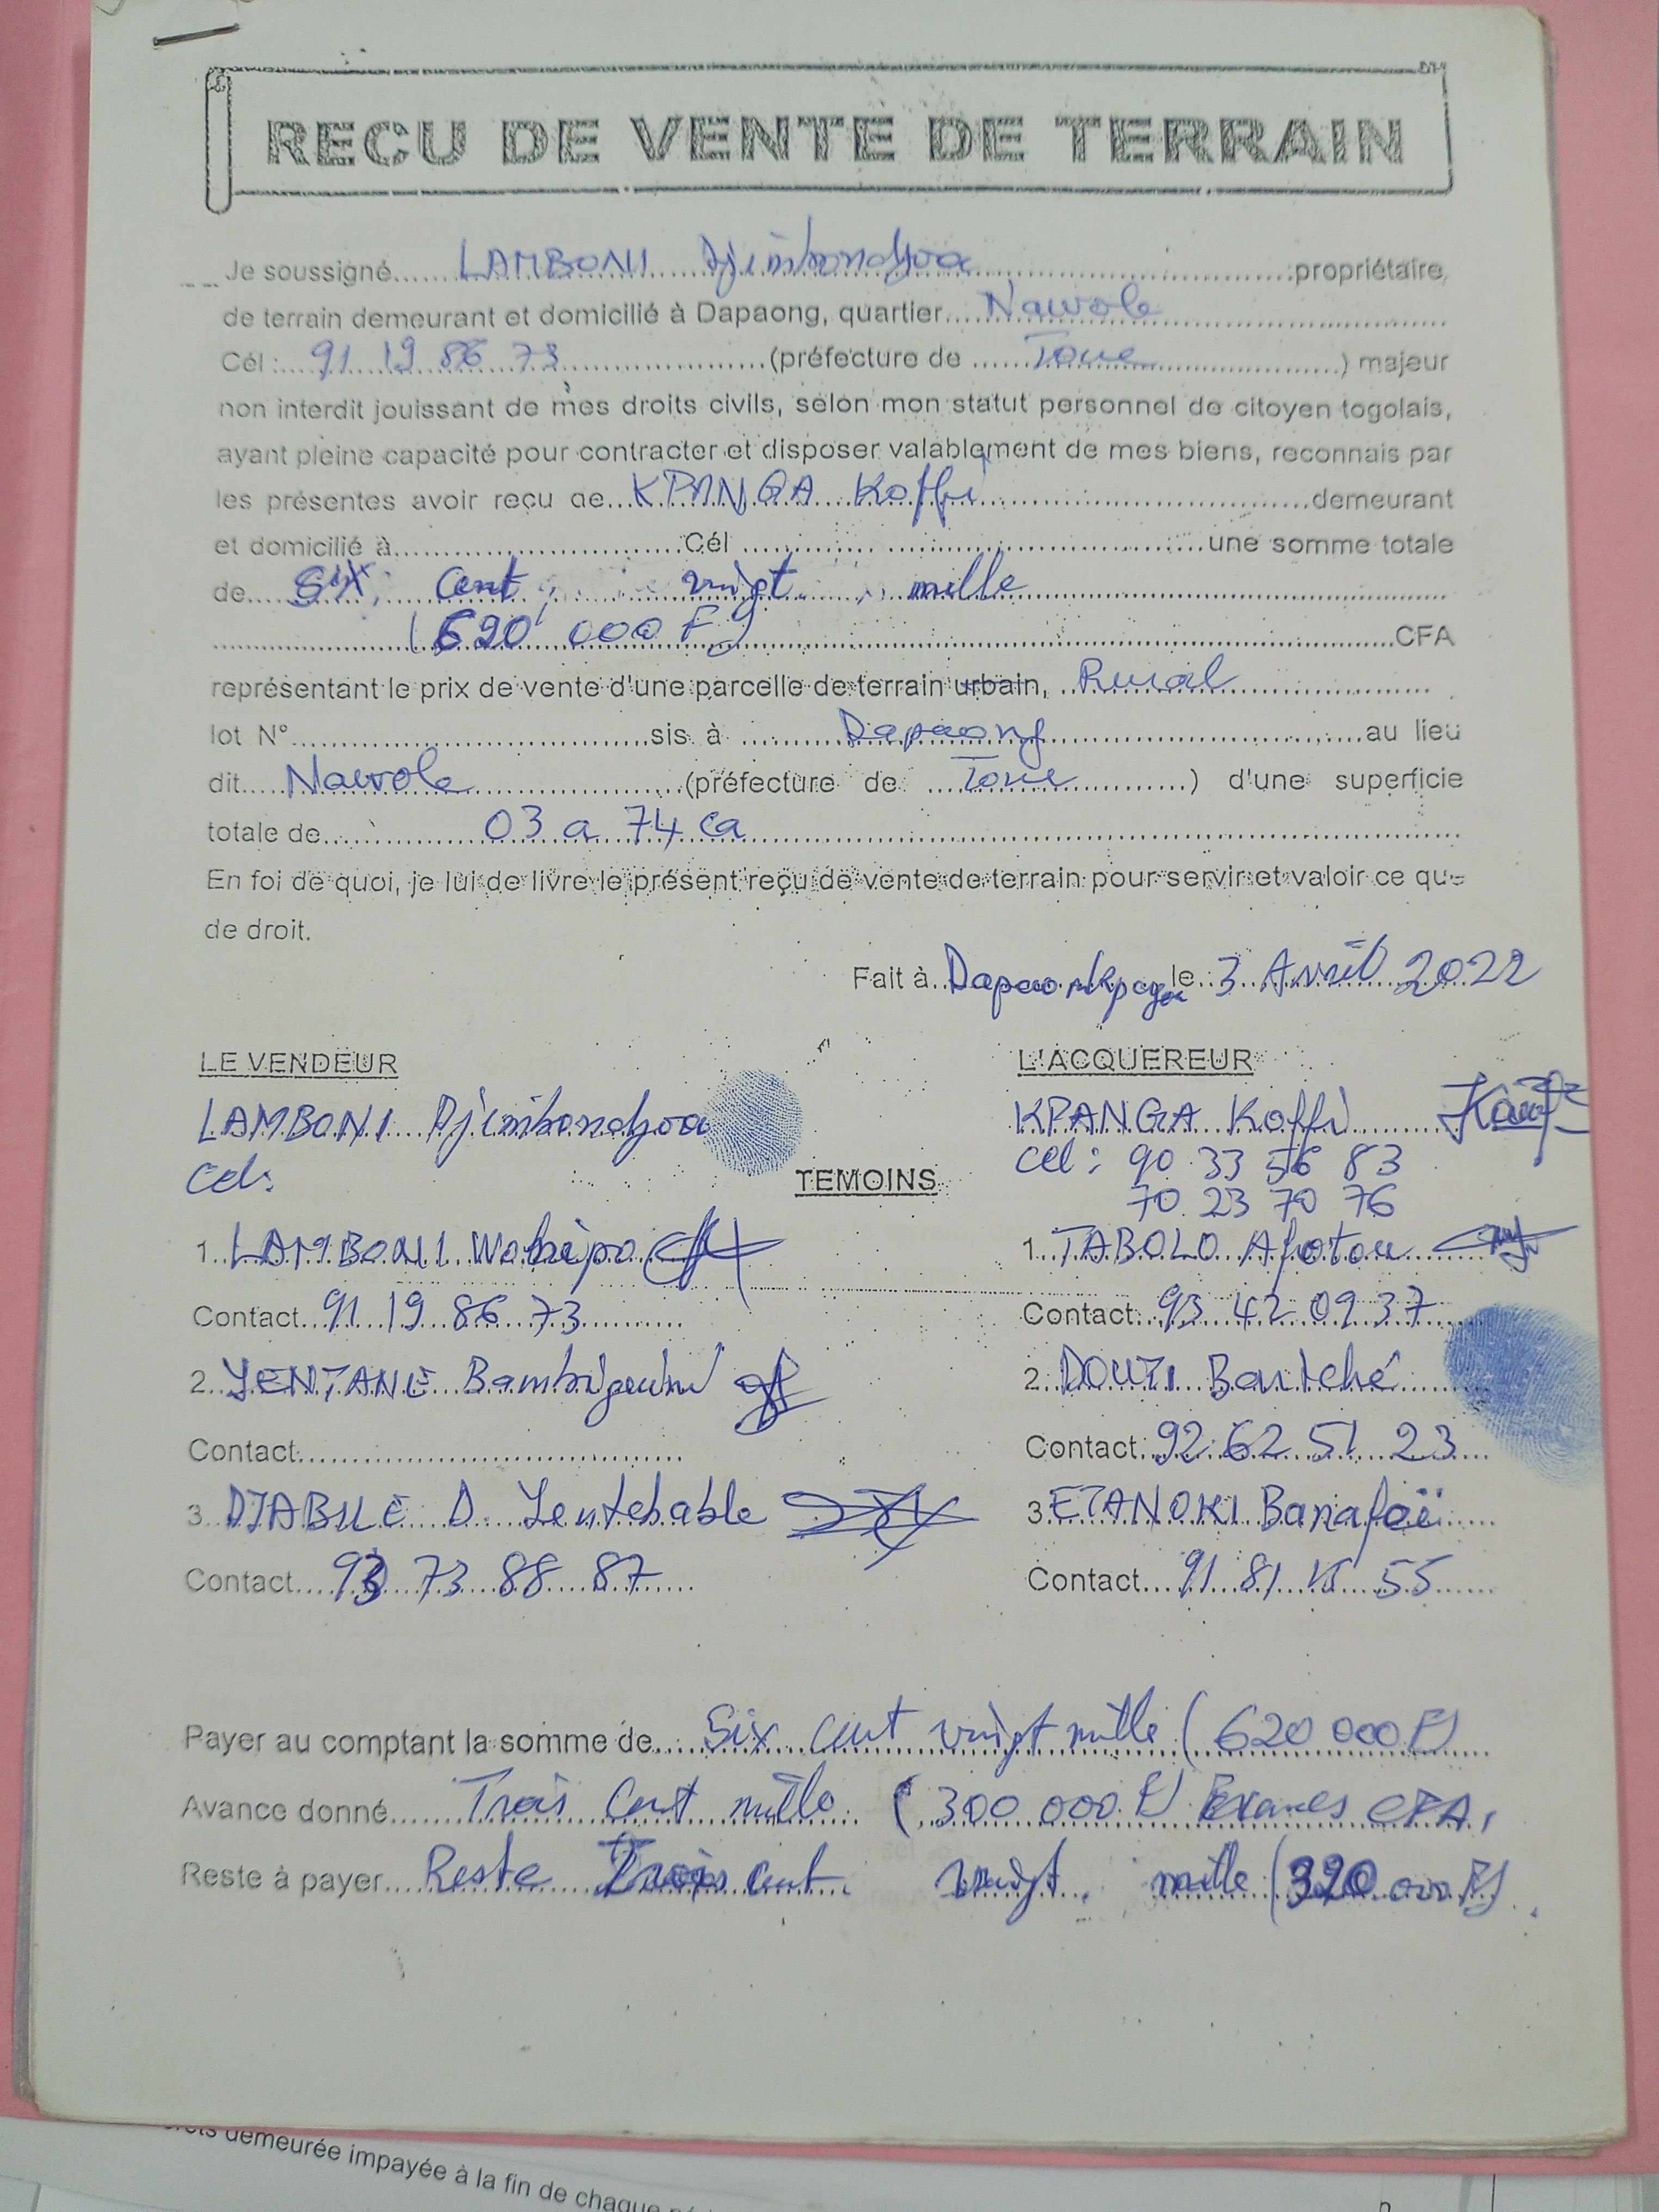 REÇU DE VENTE DE TERRAIN
Je soussigné......LAMBONI Djimbondjoa..............................propriétaire,
de terrain demeurant et domicilié à Dapaong, quartier.....Nawole..............................
Cél :....91 19 86 73....................(préfecture de ......Tone....................) majeur
non interdit jouissant de mes droits civils, selon mon statut personnel de citoyen togolais,
ayant pleine capacité pour contracter et disposer valablement de mes biens, reconnais par
les présentes avoir reçu de...KPANGA Koffi..............................demeurant
et domicilié à..............................Cél ..............................une somme totale
de.....Six cent vingt mille..............................
....................(620 000 F)..............................CFA
représentant le prix de vente d'une parcelle de terrain urbain, ..Rural..............................
lot N°..............................sis à ..........Dapaong..............................au lieu
dit.....Nawole....................(préfecture de ....Tone..........) d'une superficie
totale de...............03 a 74 ca..............................
En foi de quoi, je lui de livre le présent reçu de vente de terrain pour servir et valoir ce que
de droit.
Fait à..Dapaong le..3 Avril 2022
LE VENDEUR
L'ACQUEREUR
LAMBONI Djimbondjoa
KPANGA Koffi
Cel:
Cel : 90 33 56 83
70 23 70 76
TEMOINS
1..LAMBONI
1..TABOLO Afotou
Contact...91 19 86 73..........
Contact...93 42 09 37
2..YENTANE
2..DOUTI
Contact..............................
Contact:.92 62 51 23...
3..D. Yentchable
3.ETANOKI
Contact....93 73 88 87......
Contact...91 81 55......
Payer au comptant la somme de....Six cent vingt mille (620 000 F)
Avance donné......Trois Cent mille (300 000 F) Francs CFA,
Reste à payer...Reste Trois cent vingt mille (320 000 F).
demeurée impayée à la fin de chaque